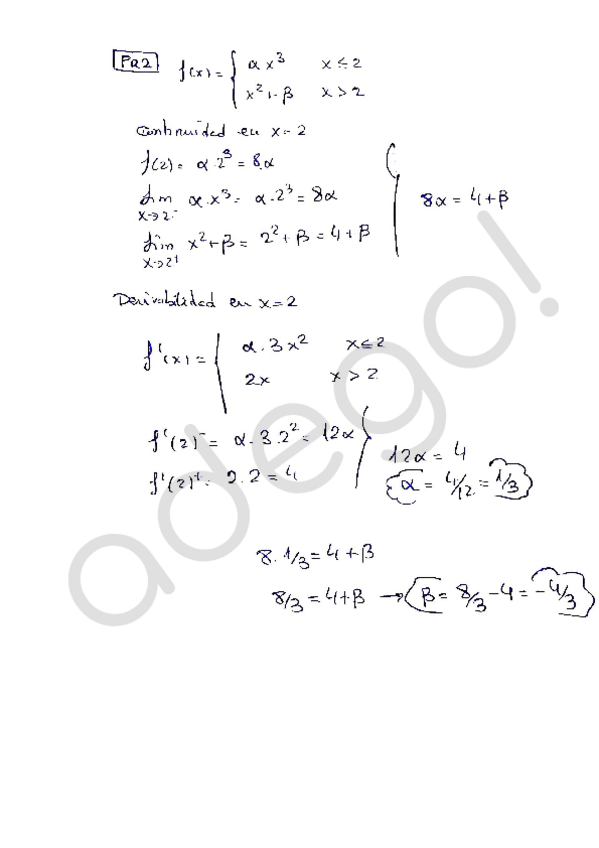 Pa2 f(x) = { αx³ x ≤ 2
x² + β x > 2
Continuidad en x = 2
f(2) = α·2³ = 8α
lim x→2⁻ α·x³ = α·2³ = 8α
8α = 4 + β
lim x→2⁺ x² + β = 2² + β = 4 + β
Derivabilidad en x = 2
f'(x) = { α·3x² x ≤ 2
2x x > 2
f'(2)⁻ = α·3·2² = 12α
12α = 4
f'(2)⁺ = 2·2 = 4
α = 4/12 = 1/3
8·1/3 = 4 + β
8/3 = 4 + β → β = 8/3 - 4 = -4/3
adego!